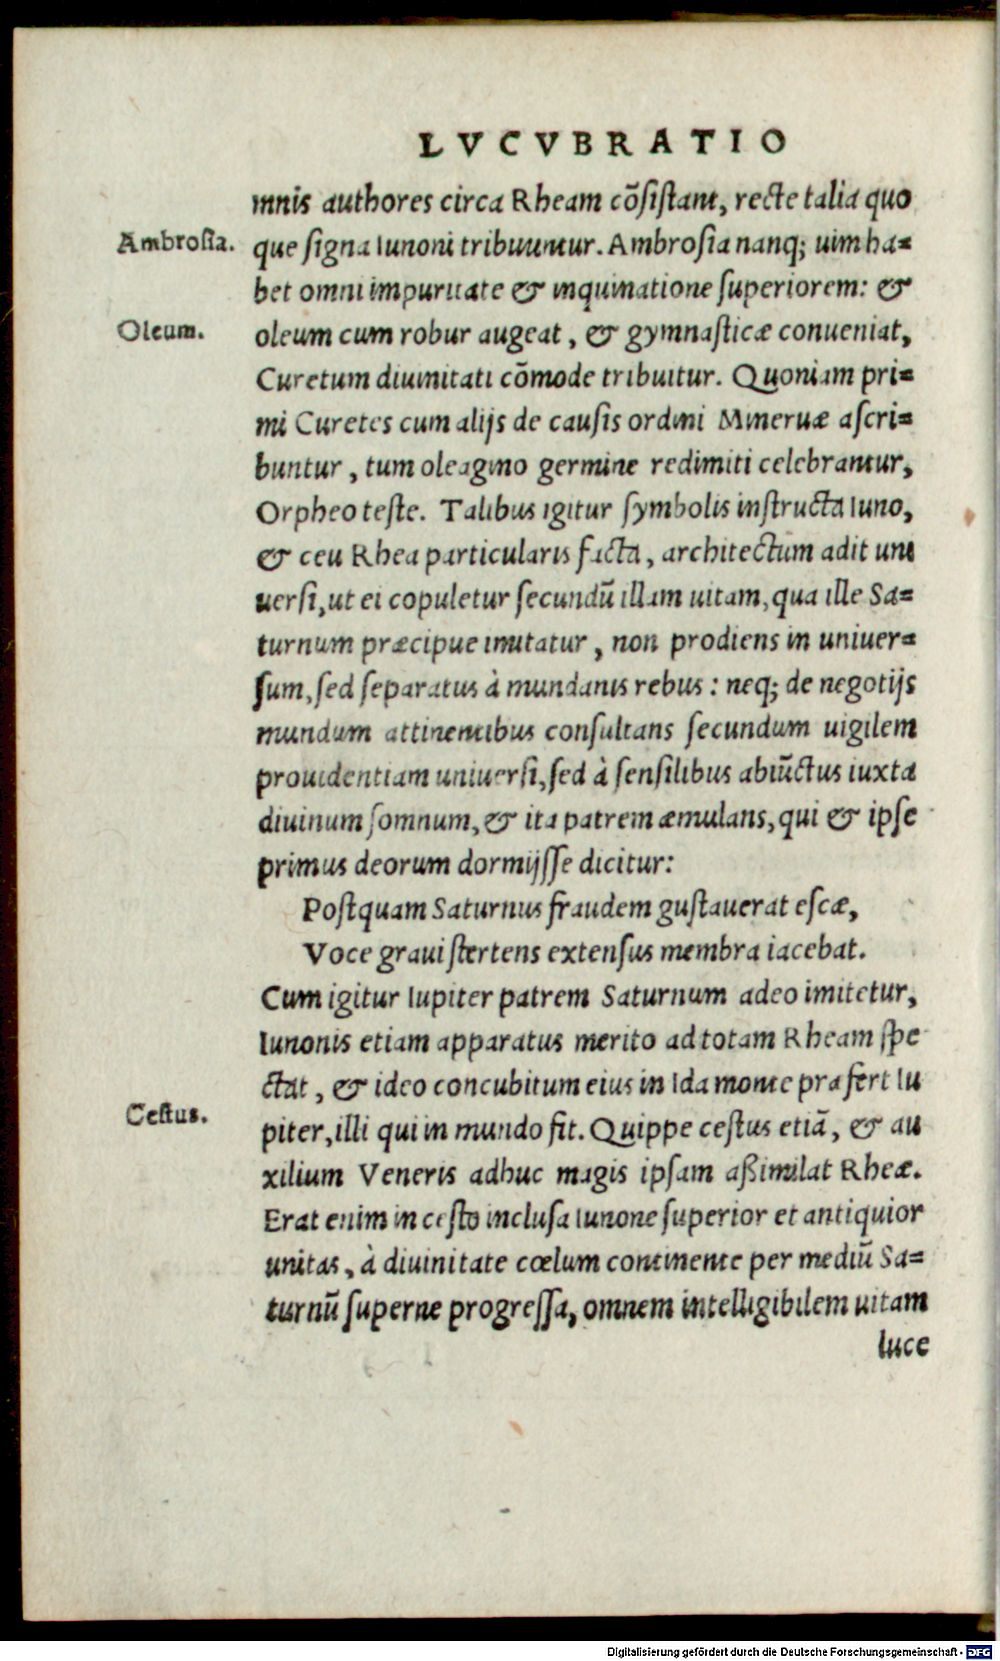 LVCVBRATIO
mnis authores circa Rheam cõsistant, recte talia quo
Ambrosia.
que signa Iunoni tribuuntur. Ambrosia nanq; uim ha=
bet omni impuritate & inquinatione superiorem: &
Oleum.
oleum cum robur augeat, & gymnasticæ conueniat,
Curetum diuinitati cõmode tribuitur. Quoniam pri=
mi Curetes cum alijs de causis ordini Mineruæ ascri=
buntur, tum oleagino germine redimiti celebrantur,
Orpheo teste. Talibus igitur symbolis instructa Iuno,
& ceu Rhea particularis facta, architectum adit uni
uersi, ut ei copuletur secundũ illam uitam, qua ille Sa=
turnum præcipue imitatur, non prodiens in uniuer=
sum, sed separatus à mundanis rebus: neq; de negotijs
mundum attinentibus consultans secundum uigilem
prouidentiam uniuersi, sed à sensilibus abiũctus iuxta
diuinum somnum, & ita patrem æmulans, qui & ipse
primus deorum dormijsse dicitur:
Postquam Saturnus fraudem gustauerat escæ,
Voce graui stertens extensus membra iacebat.
Cum igitur Iupiter patrem Saturnum adeo imitetur,
Iunonis etiam apparatus merito ad totam Rheam spe
ctat, & ideo concubitum eius in Ida monte præfert Iu
Cestus.
piter, illi qui in mundo fit. Quippe cestus etiã, & au
xilium Veneris adhuc magis ipsam aßimilat Rheæ.
Erat enim in cesto inclusa Iunone superior et antiquior
unitas, à diuinitate cœlum continente per mediũ Sa=
turnũ superne progressa, omnem intelligibilem uitam
luce
Digitalisierung gefördert durch die Deutsche Forschungsgemeinschaft - DFG